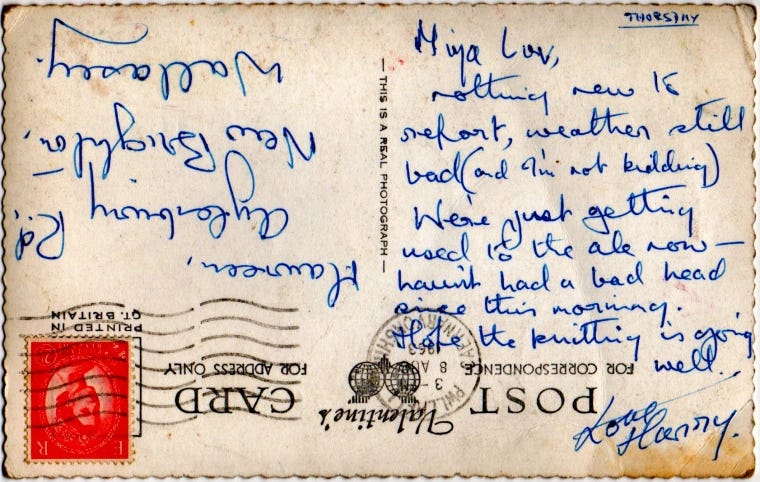 THORSDAY
Hiya Luv,
nothing new to
report, weather still
bad (and I'm not kidding)
We're just getting
used to the ale now —
haven't had a bad head
since this morning.
Hope the knitting is going
well.
Love
Harry.
— THIS IS A REAL PHOTOGRAPH —
POST CARD
Valentine's
FOR CORRESPONDENCE
FOR ADDRESS ONLY
PRINTED IN
GT. BRITAIN
3 -
8 AUG
1963
PWLLHELI
CAERNARVONSHIRE
E R
Maureen,
Aylesbury Rd,
New Brighton,
Wallasey.